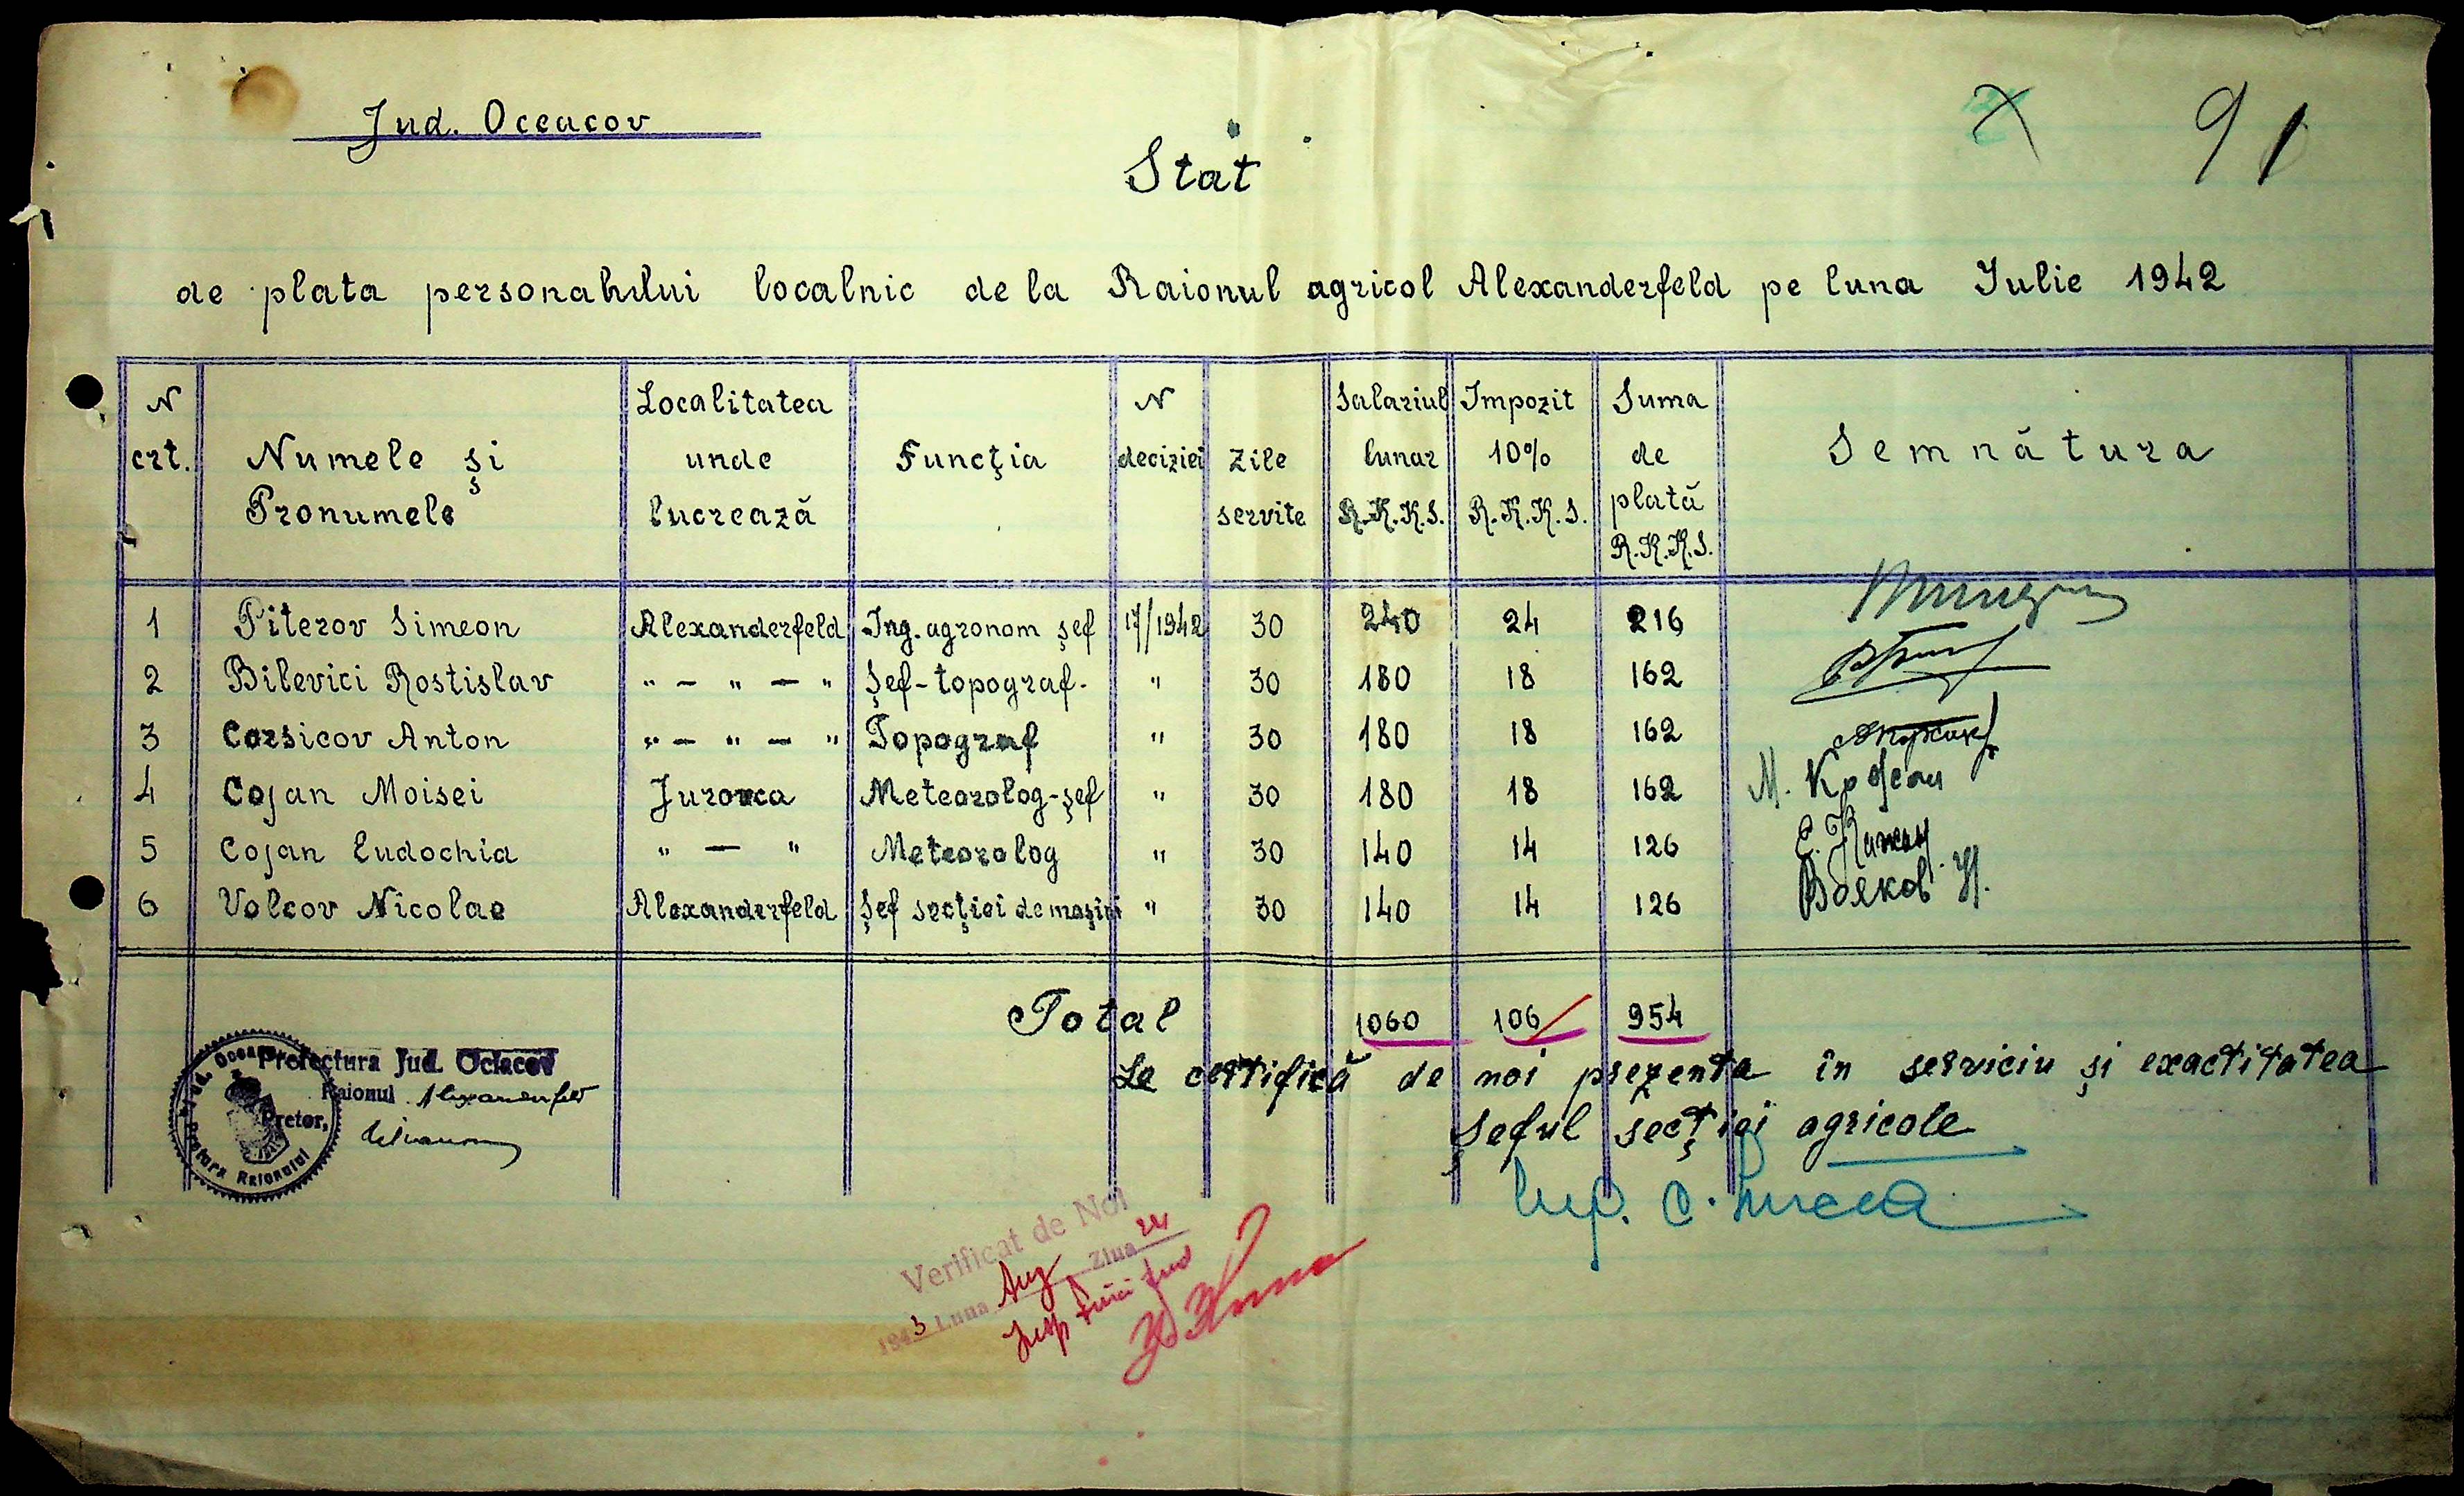 Jud. Oceacov
91
Stat
de plata personalului localnic de la Raionul agricol Alexanderfeld pe luna Iulie 1942
N crt. Numele și Pronumele Localitatea unde lucrează Funcţia N deciziei Zile servite Salariul lunar R.K.K.S. Impozit 10% R.K.K.S. Suma de plată R.K.K.S. Semnătura
1 Piterov Simeon Alexanderfeld Ing. agronom șef 17/1942 30 240 24 216
2 Bilevici Rostislav " — " — " Șef-topograf. " 30 180 18 162
3 Corsicov Anton " — " — " Topograf " 30 180 18 162
4 Cojan Moisei Jurovca Meteorolog-șef " 30 180 18 162 М. Кожан
5 Cojan Eudochia " — " Meteorolog " 30 140 14 126 Е. Кожан
6 Volcov Nicolae Alexanderfeld Șef secţiei de mașini " 30 140 14 126 Волков Н.
Total 1060 106 954
Se certifică de noi prezenta în serviciu și exactitatea
Șeful secţiei agricole
Prefectura Jud. Oceacov
Raionul Alexanderfeld
Pretor,
Pretura Raionului
Verificat de Noi
1943 Luna Aug Ziua 24